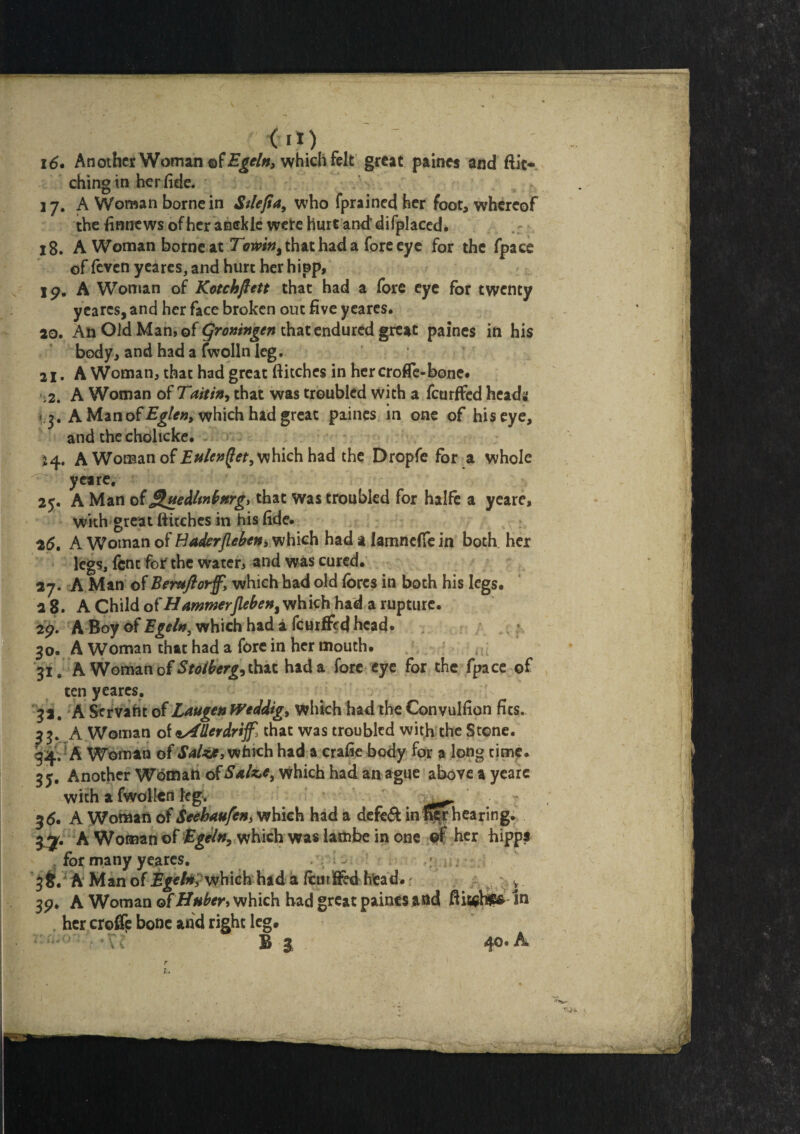 (11)
16. Another Woman of Egeln, which felt great paines and ſtit-
ching in her ſide.
17. A Woman borne in Sileſia, who ſprained her foot, whereof
the ſinnews of her anckle were hurt and diſplaced.
18. A Woman borne at Towin, that had a ſore eye for the ſpace
of ſeven yeares, and hurt her hipp,
19. A Woman of Kotchſtett that had a ſore eye for twenty
yeares, and her face broken out five yeares.
20. An Old Man, of Groningen that endured great paines in his
body, and had a ſwolln leg.
21. A Woman, that had great ſtitches in her croſſe-bone.
2. A Woman of Taitin, that was troubled with a ſcurffed head;
3. A Man of Eglen, which had great paines in one of his eye,
and the cholicke.
24. A Woman of Eulenſtet, which had the Dropſe for a whole
yeare.
25. A Man of Quedlinburg, that was troubled for halfe a yeare,
with great ſtitches in his ſide.
26. A Woman of Haderſleben, which had a lamneſſe in both her
legs, ſent for the water, and was cured.
27. A Man of Beruſtorff, which had old ſores in both his legs.
28. A Child of Hammerſleben, which had a rupture.
29. A Boy of Egeln, which had a ſcurffed head.
30. A Woman that had a ſore in her mouth.
31. A Woman of Stolberg, that had a ſore eye for the ſpace of
ten yeares.
32. A Servant of Laugen Weddig, which had the Convulſion fits.
33. A Woman of Allerdriff, that was troubled with the Stone.
34. A Woman of Salze, which had a craſie body for a long time.
35. Another Woman of Salze, which had an ague above a yeare
with a ſwollen leg.
36. A Woman of Seehauſen, which had a defect in her hearing.
37. A Woman of Egeln, which was lambe in one of her hipps
for many yeares.
38. A Man of Egeln, which had a ſcurffed head.
39. A Woman of Huber, which had great paines and ſtitches in
her croſſe bone and right leg.
B 3 40. A